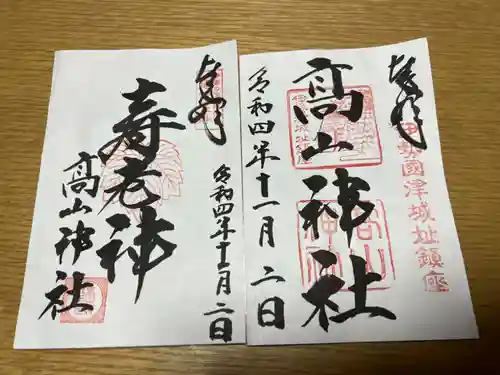 奉拝
伊勢國津城址鎮座
高山神社
令和四年十一月二日
奉拝
令和四年十一月二日
寿老神
高山神社